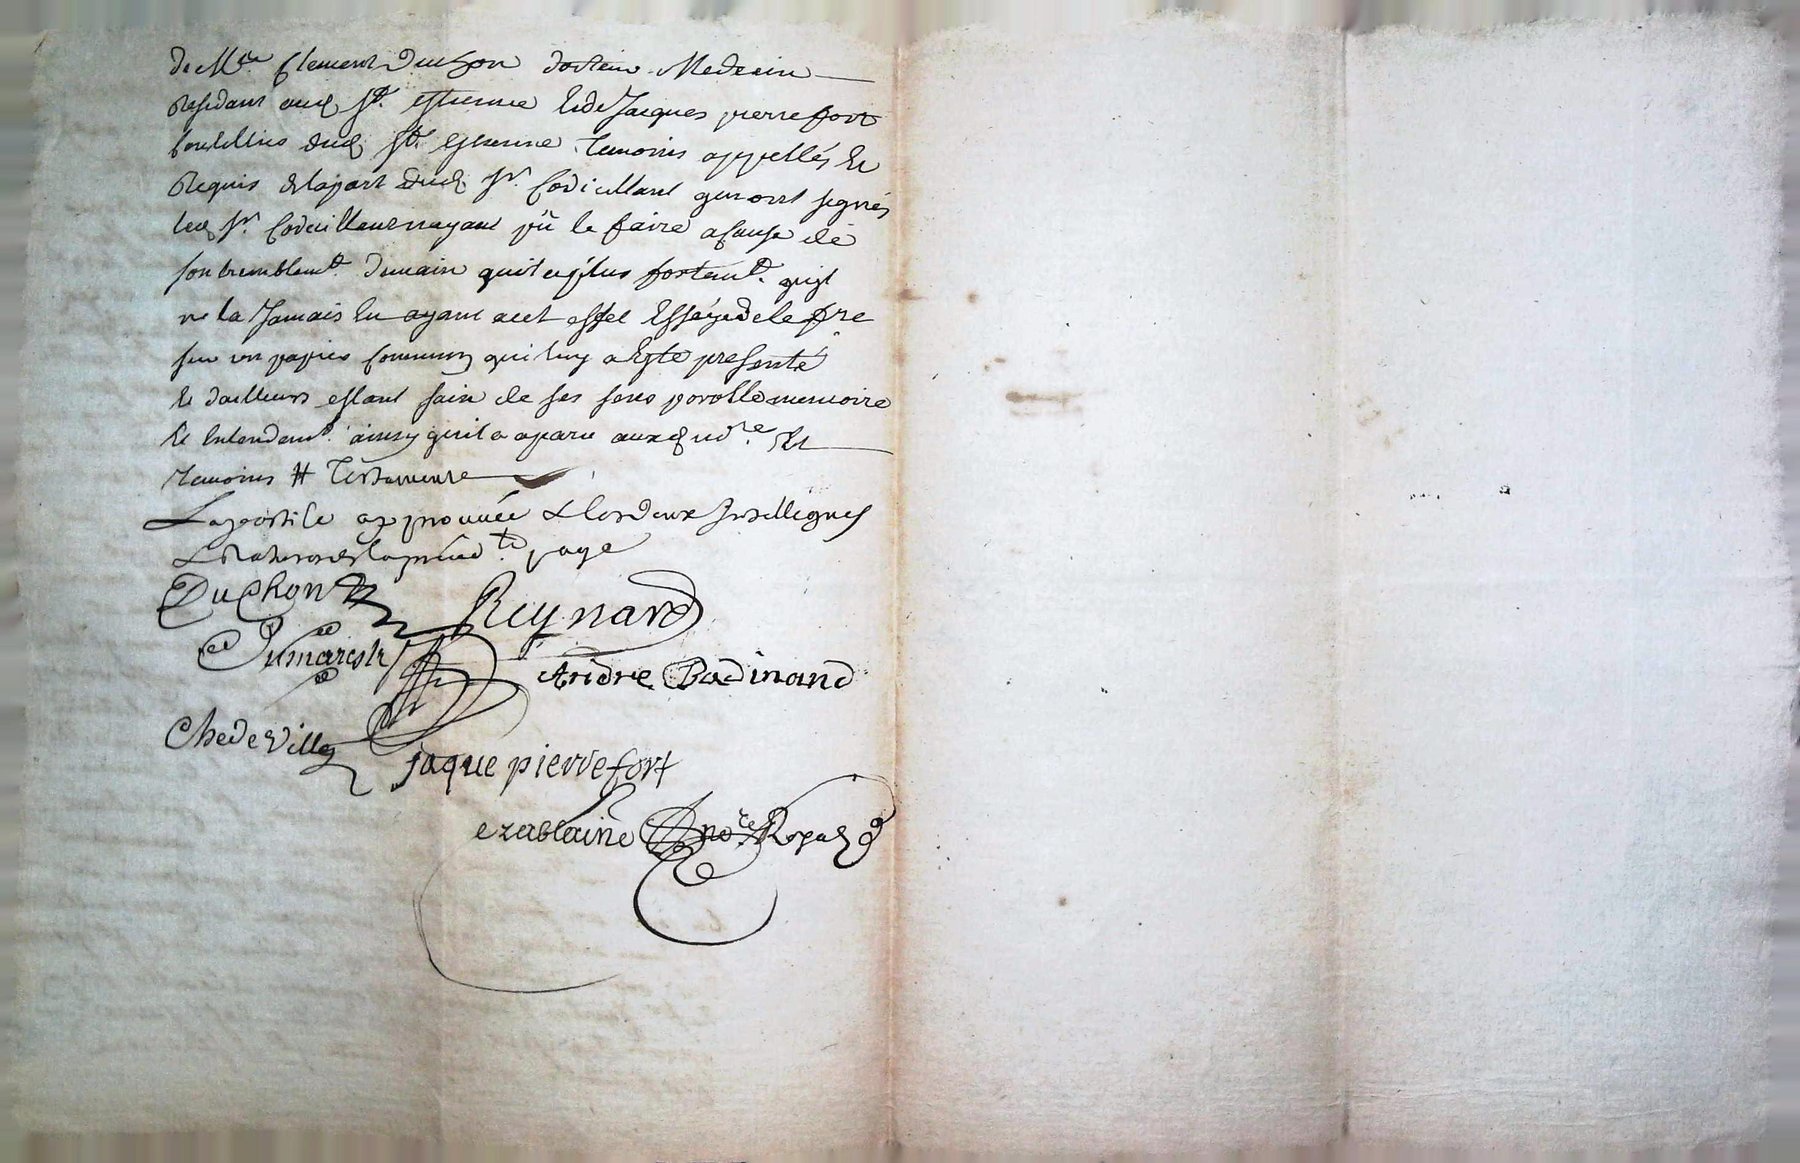 de Mre Clement Duchon docteur Medecin
Residant aud St. estienne Et de Jacques pierrefort
dud St. estienne temoins appellés Et
Requis de la part dud Sr. Codicillant qui ont signés
led Sr. Codicillant nayant pû le faire a cause de
son tremblemt. de main quil a plus fortemt. quil
ne la Jamais Eu ayant a cet effet Essayé de le fre
sur un papier commun qui luy a Esté presenté
Et dailleurs estant sain de ses sens parolle memoire
Et Entendemt. ainsy quil a aparu auxd nore Et
temoins # testamente
Lapostile approuvée & les deux
page
DuChon Reynard
Dumarestz
Andre Badinand
Chedeville
jaque pierrefort
ezablaine nore Royal